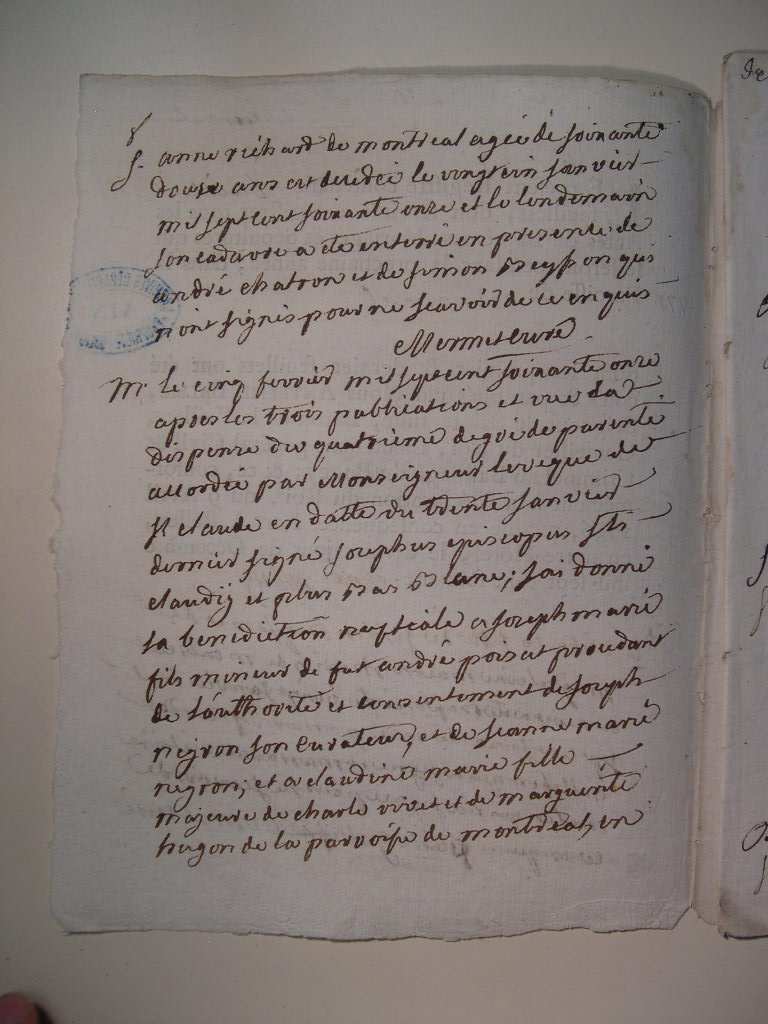 S. anne richard de montreal agée de soixante
douze ans est decedée le vingt un janvier
mil sept cent soixante onze et le lendemain
son cadavre a été enterré en presence de
andré chatron et de simon Beysson qui
n'ont signés pour ne scavoir de ce enquis
Mermet curé
M. le cinq fevrier mil sept cent soixante onze
apres les trois publications et vue la
dispense du quatrieme degré de parenté
accordée par Monseigneur leveque de
st claude en datte du trente janvier
dernier signé josephus episcopus sti
claudij et plus bas Blanc; jai donné
la benediction nuptiale a joseph marie
fils mineur de fut andré poisat procedant
de l'authorité et consentement de joseph
neyron son curateur, et de jeanne marie
neyron; et a claudine marie fille
majeure de charle vivet et de marguerite
hugon de la paroisse de montreal, en